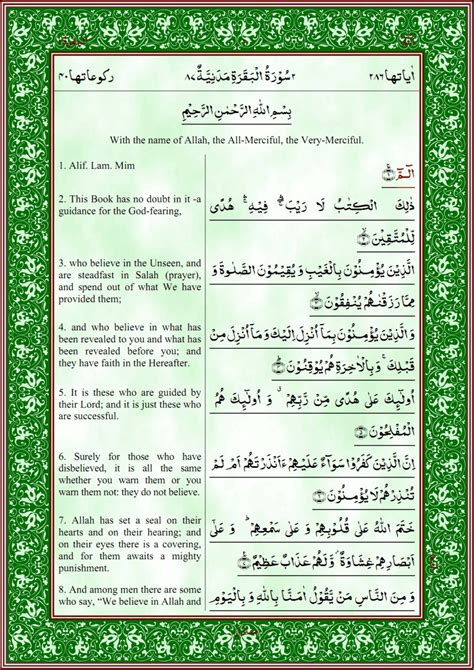 اٰیاتها ۲۸۶
۲ سُوْرَةُ الْبَقَرَةِ مَدَنِيَّةٌ ۸۷
رکوعاتها ۴۰
بِسْمِ اللهِ الرَّحْمٰنِ الرَّحِيْمِ
With the name of Allah, the All-Merciful, the Very-Merciful.
1. Alif. Lam. Mim
الٓـمّٓ ۚ﴿۱﴾
2. This Book has no doubt in it -a
guidance for the God-fearing,
ذٰلِكَ الْكِتٰبُ لَا رَيْبَ ۛ فِيْهِ ۛ هُدًى
لِّلْمُتَّقِيْنَ ﴿۲﴾
3. who believe in the Unseen, and
are steadfast in Salah (prayer), and
spend out of what We have
provided them;
الَّذِيْنَ يُؤْمِنُوْنَ بِالْغَيْبِ وَ يُقِيْمُوْنَ الصَّلٰوةَ وَ
مِمَّا رَزَقْنٰهُمْ يُنْفِقُوْنَ ﴿۳﴾
4. and who believe in what has
been revealed to you and what has
been revealed before you; and
they have faith in the Hereafter.
وَ الَّذِيْنَ يُؤْمِنُوْنَ بِمَاۤ اُنْزِلَ اِلَيْكَ وَ مَاۤ اُنْزِلَ مِنْ
قَبْلِكَ ۚ وَ بِالْاٰخِرَةِ هُمْ يُوْقِنُوْنَ ﴿۴﴾
5. It is these who are guided by
their Lord; and it is just these who
are successful.
اُولٰٓئِكَ عَلٰى هُدًى مِّنْ رَّبِّهِمْ ۗ وَ اُولٰٓئِكَ هُمُ
الْمُفْلِحُوْنَ ﴿۵﴾
6. Surely for those who have
disbelieved, it is all the same
whether you warn them or you
warn them not: they do not believe.
اِنَّ الَّذِيْنَ كَفَرُوْا سَوَآءٌ عَلَيْهِمْ ءَاَنْذَرْتَهُمْ اَمْ لَمْ
تُنْذِرْهُمْ لَا يُؤْمِنُوْنَ ﴿۶﴾
7. Allah has set a seal on their
hearts and on their hearing; and
on their eyes there is a covering,
and for them awaits a mighty
punishment.
خَتَمَ اللهُ عَلٰى قُلُوْبِهِمْ وَ عَلٰى سَمْعِهِمْ ؕ وَ عَلٰۤى
اَبْصَارِهِمْ غِشَاوَةٌ ۫ وَّ لَهُمْ عَذَابٌ عَظِيْمٌ ﴿۷﴾
8. And among men there are some
who say, “We believe in Allah and
وَ مِنَ النَّاسِ مَنْ يَّقُوْلُ اٰمَنَّا بِاللهِ وَ بِالْيَوْمِ